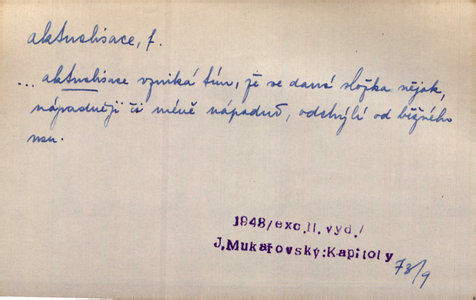 aktualisace, f.
... aktualisace vzniká tím, že se daná složka nějak,
nápadněji či méně nápadně, odchýlí od běžného
usu.
1948/exc.II.vyd./
J.Mukařovský:Kapitoly
78/9